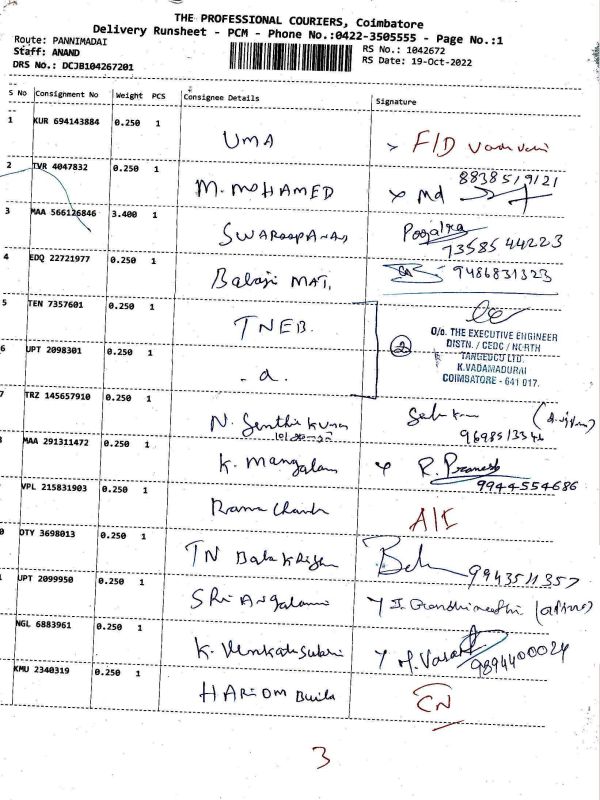 THE PROFESSIONAL COURIERS, Coimbatore
Delivery Runsheet - PCM - Phone No.:0422-3505555 - Page No.:1
Route: PANNIMADAI
Staff: ANAND
DRS No.: DCJB104267201
RS No.: 1042672
RS Date: 19-Oct-2022
S No Consignment No Weight PCS Consignee Details Signature
1 KUR 694143884 0.250 1
UMA F/D
2 TVR 4047832 0.250 1
M. MOHAMED x Md 8838519121
3 MAA 566126846 3.400 1
SWAROOPANAN 7358544223
4 EDQ 22721977 0.250 1
Balaji MAT. 9486831323
5 TEN 7357601 0.250 1
TNEB.
6 UPT 2098301 0.250 1
- a.
2
O/o. THE EXECUTIVE ENGINEER
DISTN. / CEDC / NORTH
TANGEDCO LTD.
K.VADAMADURAI
COIMBATORE - 641 017.
7 TRZ 145657910 0.250 1
N. Senthil Kumar
MAA 291311472 0.250 1
K. Mangalam R. Pramesh
9944554686
VPL 215831903 0.250 1
Rama Chandr A/I
0 OTY 3698013 0.250 1
TN Bala Krishn 9943511357
UPT 2099950 0.250 1
SRi Angalamm
NGL 6883961 0.250 1
K. Venkatsubri 9894400024
KMU 2340319 0.250 1
HARiOM Build CN
3